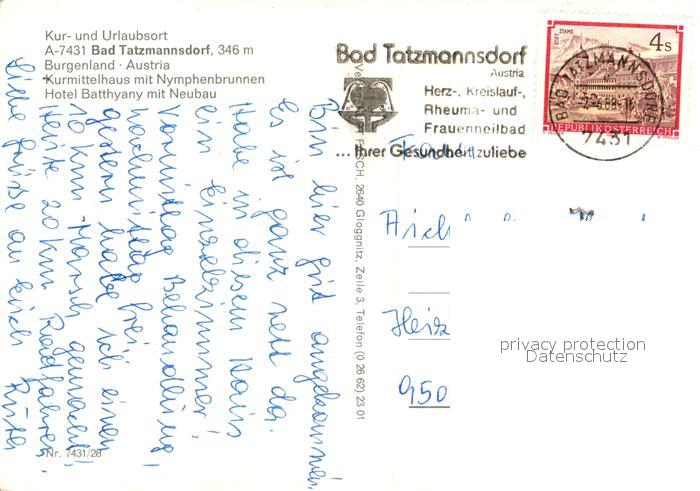 Kur- und Urlaubsort
A-7431 Bad Tatzmannsdorf, 346 m
Burgenland · Austria
Kurmittelhaus mit Nymphenbrunnen
Hotel Batthyany mit Neubau
Bad Tatzmannsdorf
Austria
Herz-, Kreislauf-,
Rheuma- und
Frauenheilbad
... Ihrer Gesundheit zuliebe
STIFT STAMS
4s
REPUBLIK ÖSTERREICH
BAD TATZMANNSDORF
7431
Bin hier gut angekommen.
Es ist ganz nett da.
Habe in diesem Haus
ein Einzelzimmer!
Vormittag Behandlung,
nachmittag frei!
gestern habe ich einen
10 km Marsch gemacht.
Heute 20 km Radfahren.
Liebe Grüße an Euch
2640 Gloggnitz, Zeile 3, Telefon (0 26 62) 23 01
950
privacy protection
Datenschutz
Nr. 7431/28